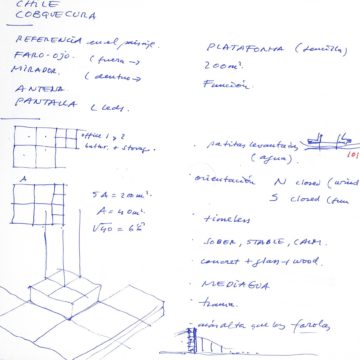 CHILE
COBQUECURA
REFERENCIA en el paisaje.
FARO-OJO. (fuera →
MIRADOR. (dentro →
ANTENA
PANTALLA (leds.
office 1 y 2
+ storag.
A
5A = 200 m².
A = 40 m².
√40 = 6
PLATAFORMA (sencilla)
200 m².
Función.
· patitas levantadas
(agua).
· orientación N closed (wind
S closed (sun
· timeless
· SOBER, STABLE, CALM.
· concret + glass + wood.
· MEDIAGUA
· trama.
· más alta que los farolas